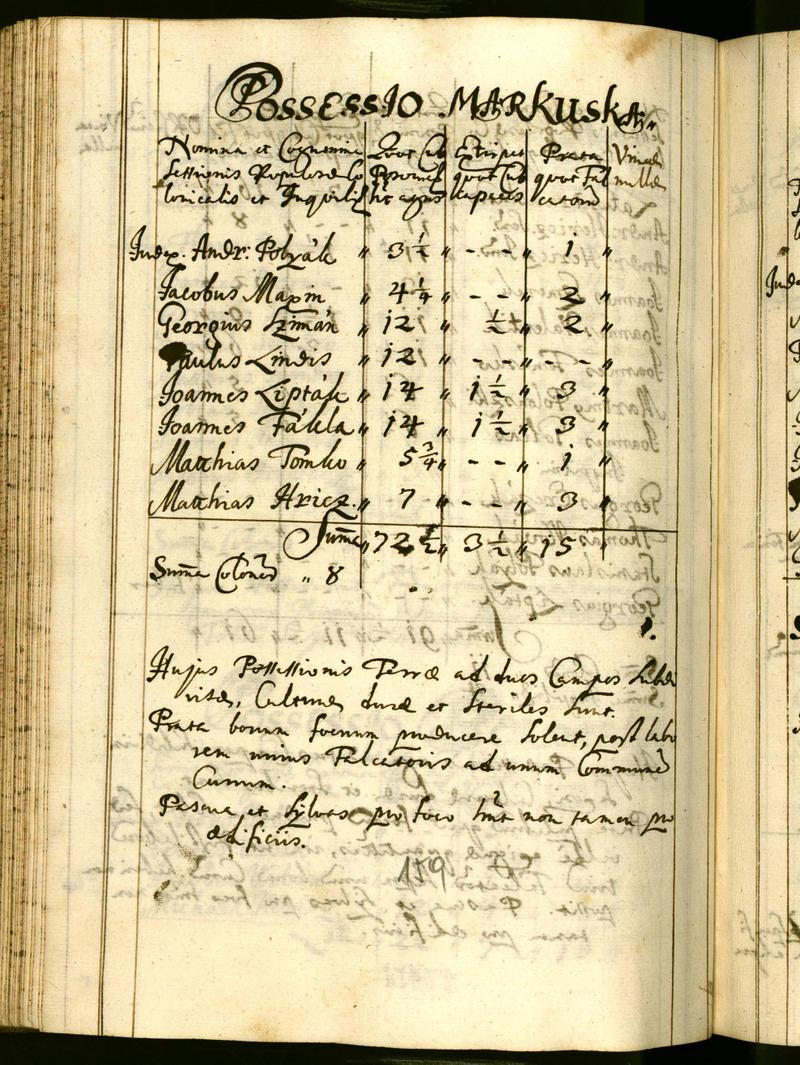 Possessio Markuska.
Nomina et Cognomina Quot Cub Extirpat Prata Vineae
Sessionis Populosae Co Posonien quot Cub quot fal nullae
lonicalis et Inquilin lit capacis catorum
Judex. Andr: Polyák " 3 1/2 " - - " 1 "
Jacobus Maxin " 4 1/4 " - - " 2 "
Georgius Szimán " 12 " 1/2 " 2 "
Paulus Lindis " 12 " - - " - - "
Joannes Lipták " 14 " 1 1/2 " 3 "
Joannes Fákla " 14 " 1 1/2 " 3 "
Matthias Tomko " 5 3/4 " - - " 1 "
Matthias Hricz. " 7 " - - " 3 "
Summa " 72 1/2 " 3 1/2 " 15
Summa Colonor " 8
Hujus Possessionis Terrae ad duos Campos subdi
vitae, Culturae durae et steriles sunt.
Prata bonum foenum producere solent, post labo
rem unius Falcatoris ad unum Communem
Currum.
Pascua et sylvas pro foco hnt non tamen pro
aedificiis.
159